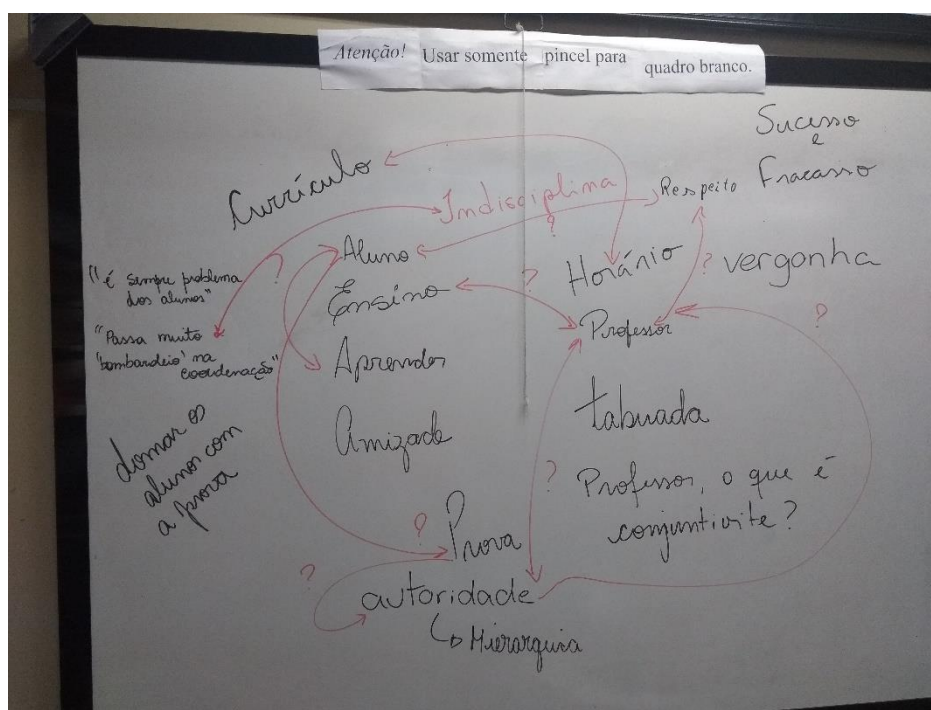 Atenção! Usar somente pincel para quadro branco.
Sucesso
e
Fracasso
Currículo
Indisciplina
Respeito
?
Aluno
Horário
? vergonha
"é sempre problema
dos alunos"
?
Ensino
?
Professor
?
"Passa muito
'bombardeio' na
coordenação"
Aprender
tabuada
Amizade
domar os
alunos com
a prova
?
Professor, o que é
conjuntivite?
?
Prova
?
autoridade
Hierarquia